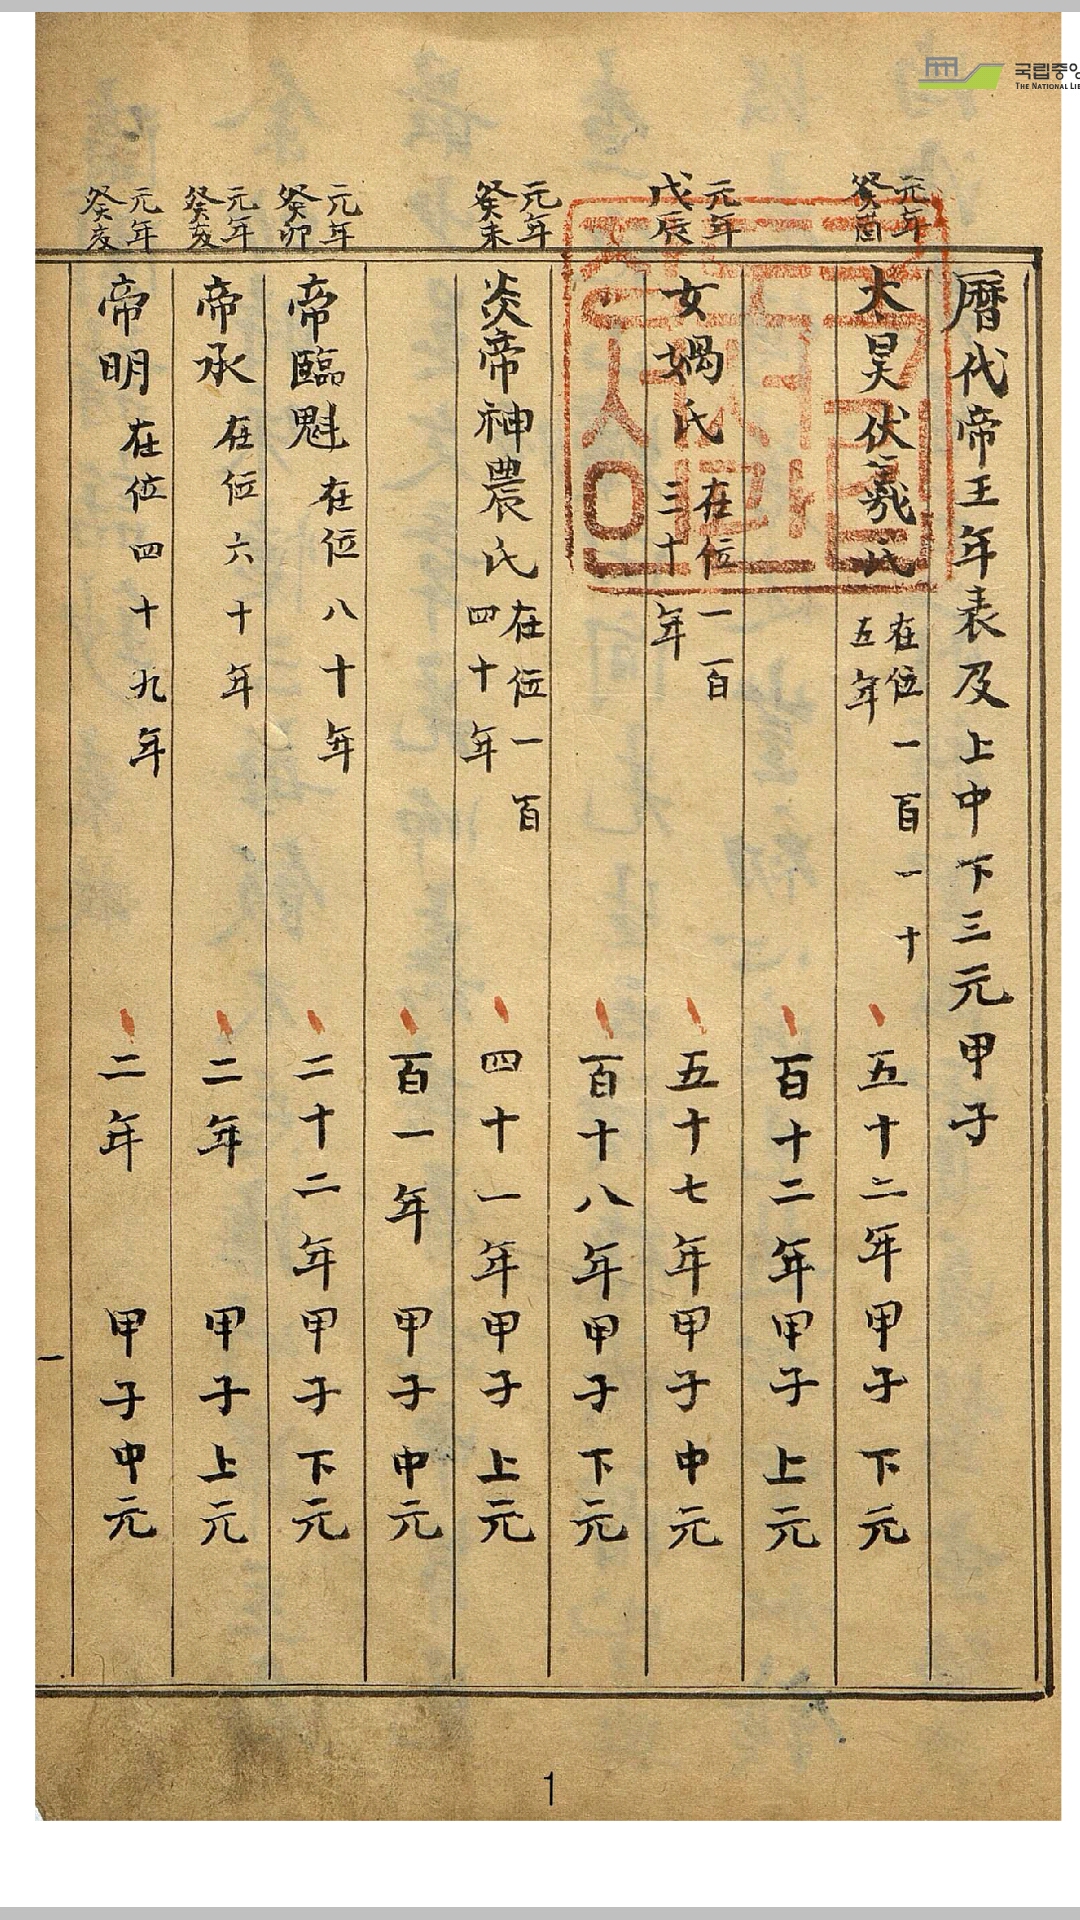 국립중앙
THE NATIONAL LIB
曆代帝王年表及上中下三元甲子
元年
癸酉
太昊伏羲氏
在位一百一十
五年
五十二年甲子下元
百十二年甲子上元
元年
戊辰
女媧氏
在位一百
三十年
五十七年甲子中元
百十八年甲子下元
元年
癸未
炎帝神農氏
在位一百
四十年
四十一年甲子上元
百一年甲子中元
元年
癸卯
帝臨魁在位八十年
二十二年甲子下元
元年
癸亥
帝承在位六十年
二年甲子上元
元年
癸亥
帝明在位四十九年
二年甲子中元
一
1